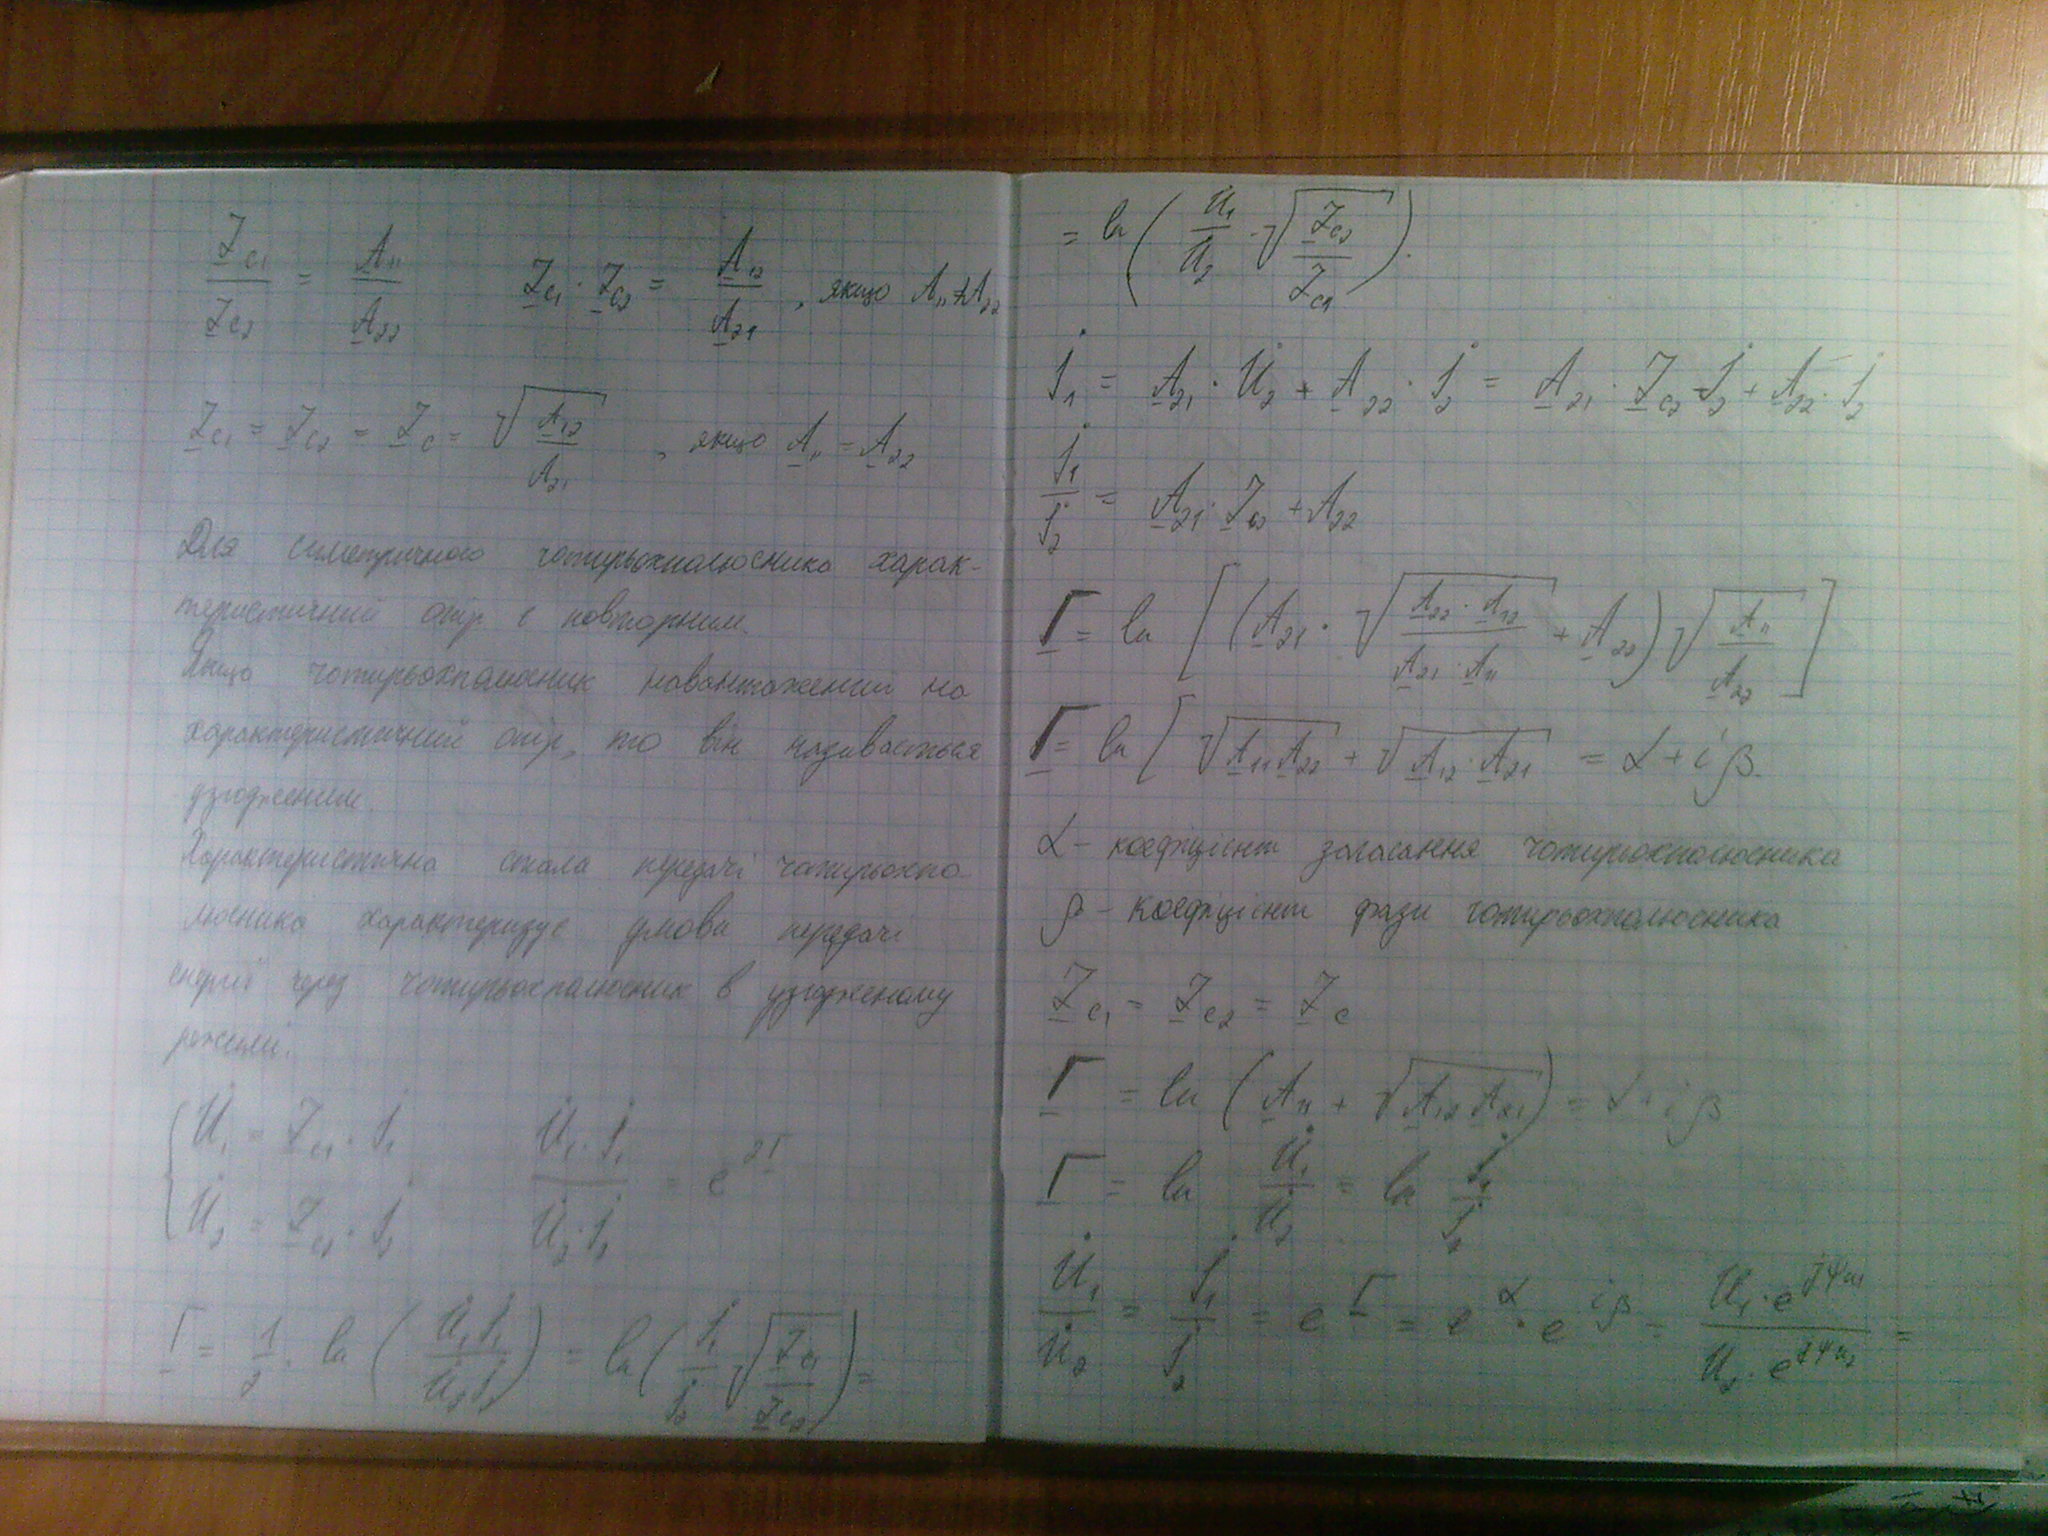 Z_c1 / Z_c2 = A_11 / A_22    Z_c1 · Z_c2 = A_12 / A_21 , якщо A_11 ≠ A_22
Z_c1 = Z_c2 = Z_c = √(A_12 / A_21) , якщо A_11 = A_22
Для симетричного чотирьохполюсника харак-
теристичний опір є повторним.
Якщо чотирьохполюсник навантажений на
характеристичний опір, то він називається
узгодженим.
Характеристична стала передачі чотирьохпо-
люсника характеризує умови передачі
енергії через чотирьохполюсник в узгодженому
режимі.
{ U̇_1 = Z_c1 · İ_1    (U̇_1 · İ_1) / (U̇_2 · İ_2) = e^(2Γ)
{ U̇_2 = Z_c2 · İ_2
Γ = 1/2 · ln (U̇_1 İ_1 / U̇_2 İ_2) = ln (İ_1 / İ_2 √(Z_c1 / Z_c2)) =
= ln (U̇_1 / U̇_2 · √(Z_c2 / Z_c1)).
İ_1 = A_21 · U̇_2 + A_22 · İ_2 = A_21 · Z_c2 · İ_2 + A_22 · İ_2
İ_1 / İ_2 = A_21 · Z_c2 + A_22
Γ = ln [(A_21 · √(A_22 · A_12 / A_21 · A_11) + A_22) √(A_11 / A_22)]
Γ = ln [√(A_11 A_22) + √(A_12 · A_21) = α + iβ.
α - коефіцієнт загасання чотирьохполюсника
β - коефіцієнт фази чотирьохполюсника
Z_c1 = Z_c2 = Z_c
Γ = ln (A_11 + √(A_12 A_21)) = α + iβ
Γ = ln U̇_1 / U̇_2 = ln İ_1 / İ_2
U̇_1 / U̇_2 = İ_1 / İ_2 = e^Γ = e^α · e^(iβ) = (U_1 · e^(jψu1)) / (U_2 · e^(jψu2)) =